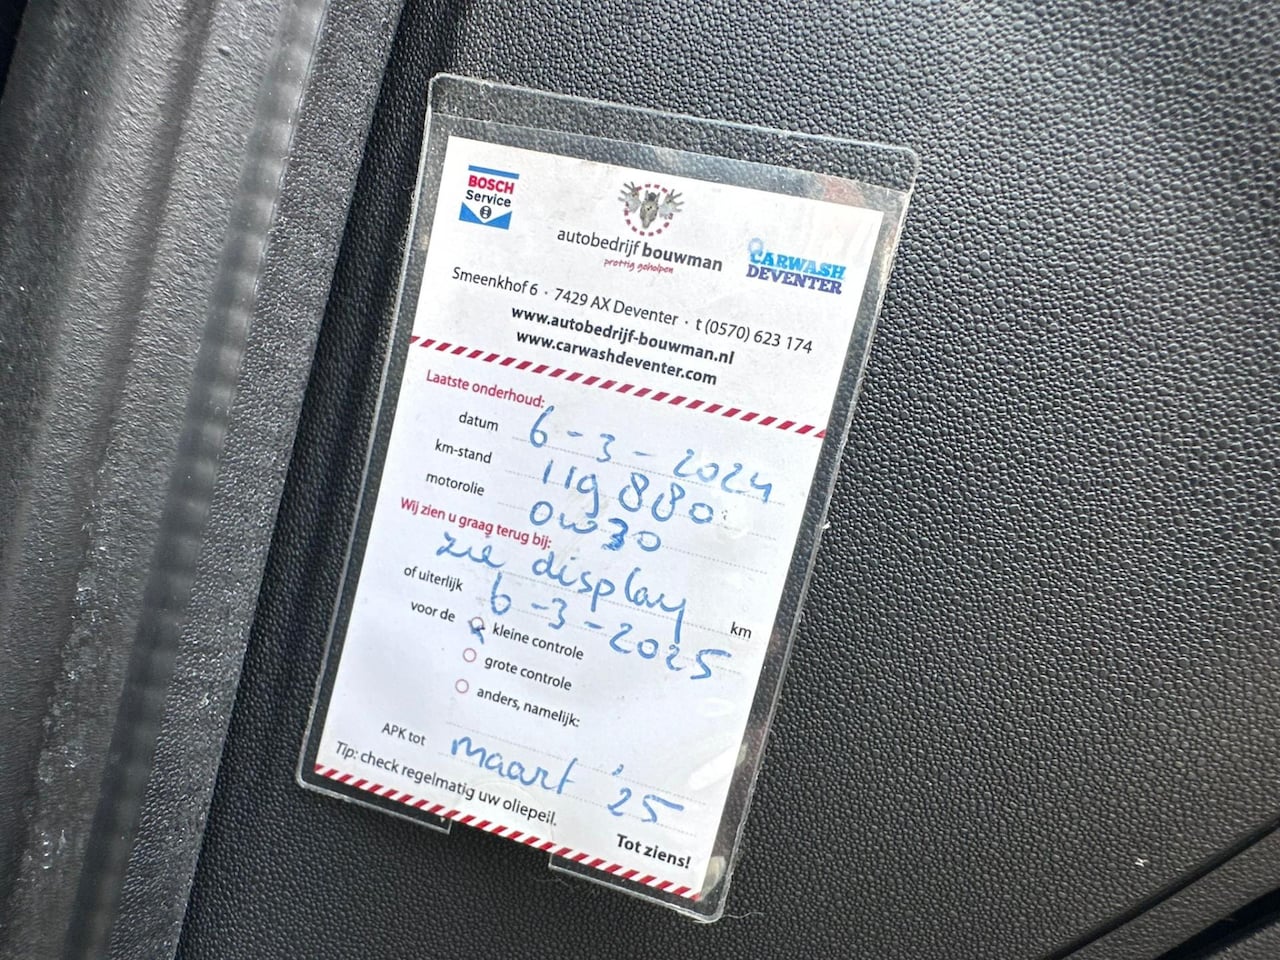 BOSCH
Service
autobedrijf bouwman
prettig geholpen
CARWASH
DEVENTER
Smeenkhof 6 · 7429 AX Deventer · t (0570) 623 174
www.autobedrijf-bouwman.nl
www.carwashdeventer.com
Laatste onderhoud:
datum 6-3-2024
km-stand 119 880
motorolie 0W30
Wij zien u graag terug bij:
zie display km
of uiterlijk 6-3-2025
voor de kleine controle
grote controle
anders, namelijk:
APK tot maart '25
Tip: check regelmatig uw oliepeil.
Tot ziens!